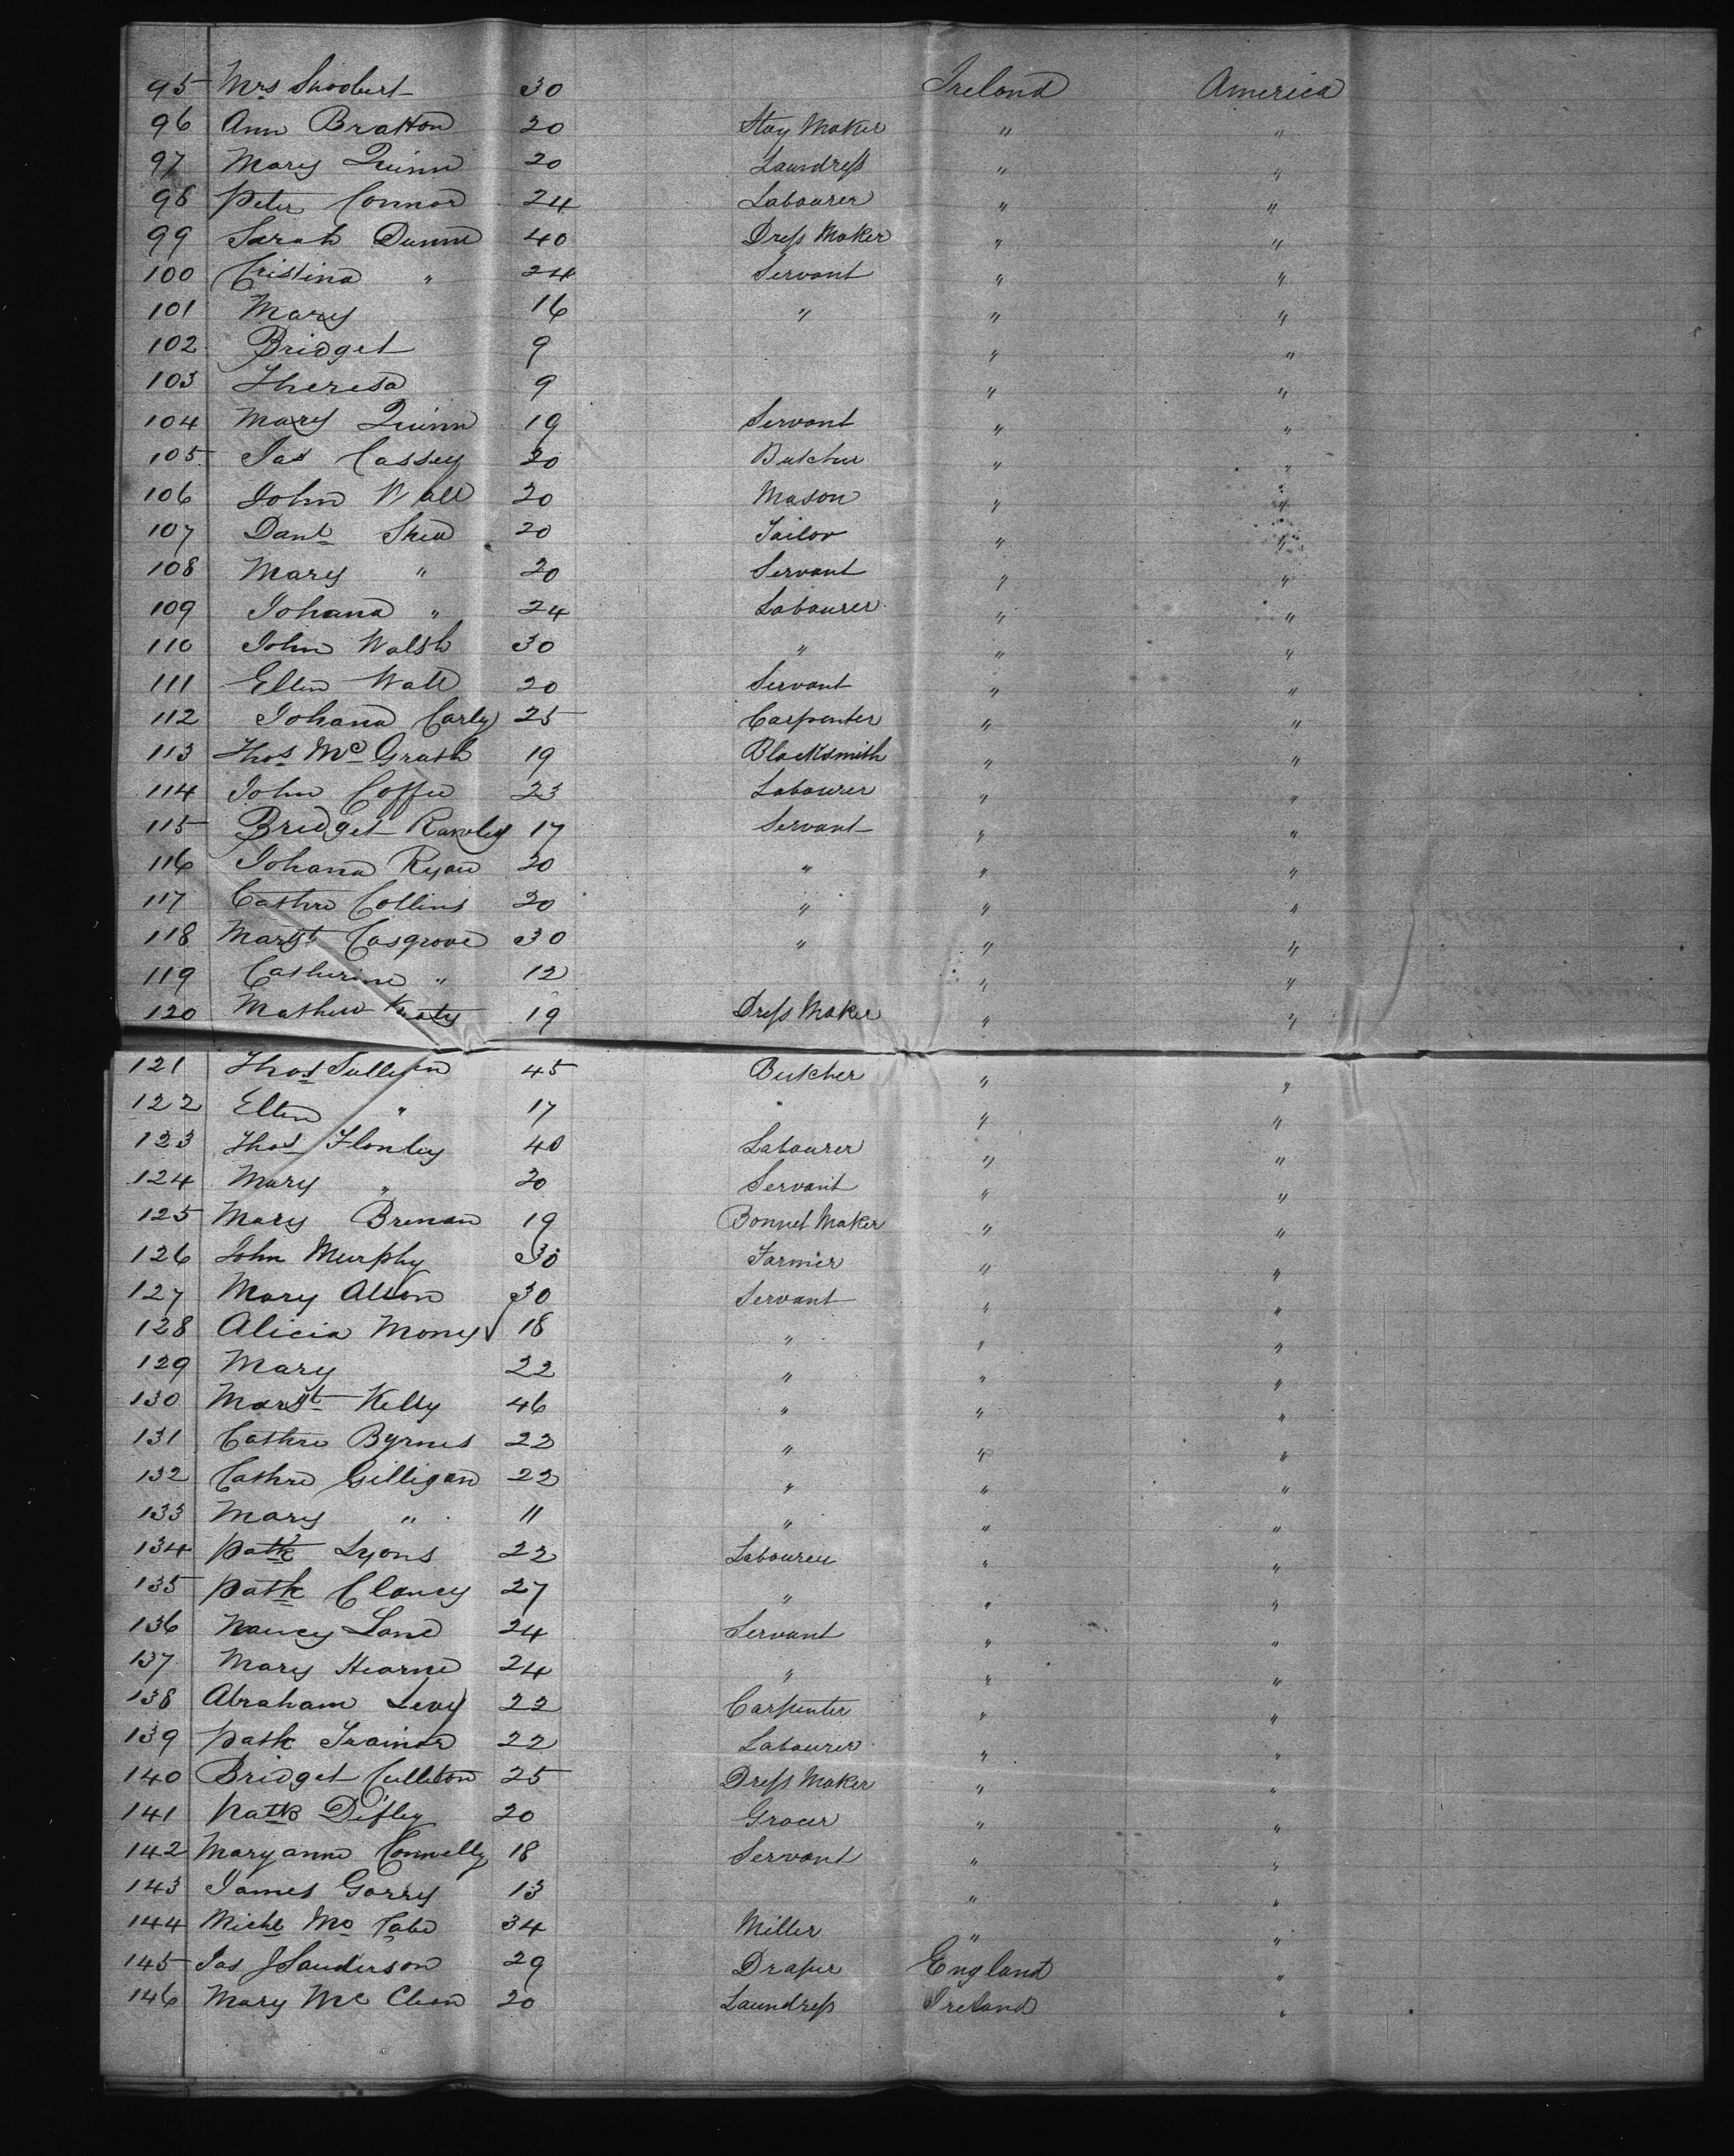 95 Mrs Shoobert 30 Ireland America
96 Ann Bratton 20 Stay Maker " "
97 Mary Quinn 20 Laundress " "
98 Peter Connor 24 Labourer " "
99 Sarah Dunne 40 Dress Maker " "
100 Cristina " 24 Servant " "
101 Mary 16 " " "
102 Bridget 9 " "
103 Theresa 9 " "
104 Mary Quinn 19 Servant " "
105 Jas Cassey 20 Butcher " "
106 John Wall 20 Mason " "
107 Danl Shea 20 Tailor " "
108 Mary " 20 Servant " "
109 Johana " 24 Labourer " "
110 John Walsh 30 " " "
111 Ellen Wall 20 Servant " "
112 Johana Carly 25 Carpenter " "
113 Thos Mc Grath 19 Blacksmith " "
114 John Coffee 23 Labourer " "
115 Bridget Rawley 17 Servant " "
116 Johana Ryan 20 " " "
117 Cathre Collins 20 " " "
118 Margt Cosgrove 30 " " "
119 Catherine " 12 " "
120 Mathew Keaty 19 Dress Maker " "
121 Thos Sullivan 45 Butcher " "
122 Ellen " 17 " "
123 Thos Hanley 40 Labourer " "
124 Mary " 20 Servant " "
125 Mary Brenan 19 Bonnet Maker " "
126 John Murphy 30 Farmer " "
127 Mary Alton 30 Servant " "
128 Alicia Money 18 " " "
129 Mary 22 " " "
130 Margt Kelly 46 " " "
131 Cathre Byrnes 22 " " "
132 Cathre Gilligan 22 " " "
133 Mary " 11 " " "
134 Patk Lyons 22 Labourer " "
135 Patk Clancy 27 " " "
136 Nancy Lane 24 Servant " "
137 Mary Hearne 24 " " "
138 Abraham Levy 22 Carpenter " "
139 Patk Trainor 22 Labourer " "
140 Bridget Culleton 25 Dress Maker " "
141 Patk Difley 20 Grocer " "
142 Maryanne Connelly 18 Servant " "
143 James Gorry 13 " "
144 Michl Mc Cabe 34 Miller " "
145 Jas J Sanderson 29 Draper England "
146 Mary Mc Clean 20 Laundress Ireland "